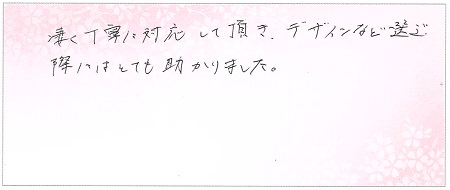 凄く丁寧に対応して頂き、デザインなど選ぶ
際にはとても助かりました。